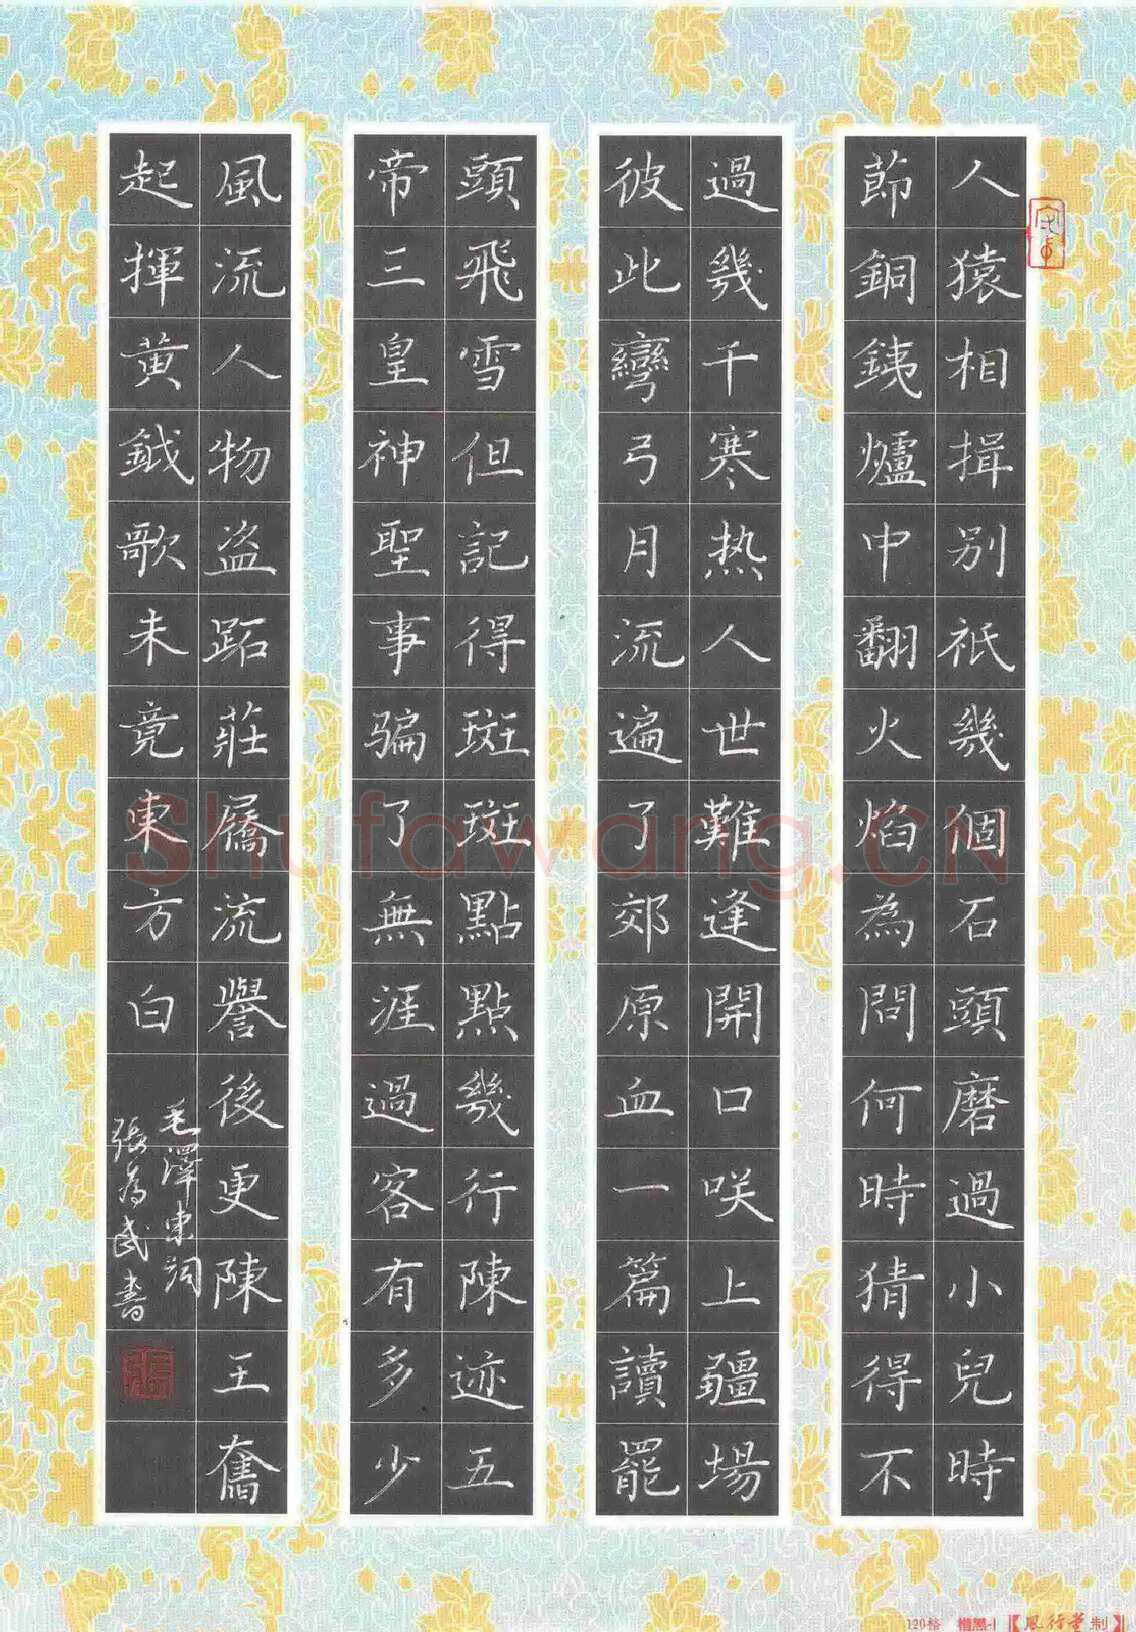 人猿相揖別祇幾個石頭磨過小兒時
節銅銕爐中翻火焰為問何時猜得不
過幾千寒热人世難逢開口咲上疆場
彼此彎弓月流遍了郊原血一篇讀罷
頭飛雪但記得斑斑點點幾行陳迹五
帝三皇神聖事騙了無涯過客有多少
風流人物盗跖莊屩流譽後更陳王奮
起揮黄鉞歌未竟東方白
毛澤東詞
張為武書
Shufawang.CN
120格 楷黑-1【風行堂制】